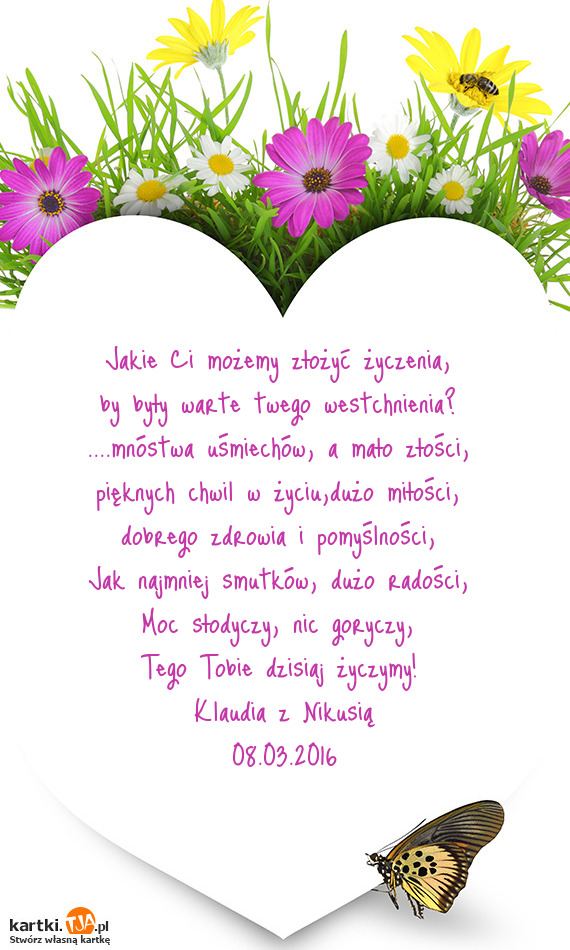 Jakie Ci możemy złożyć życzenia,
by były warte twego westchnienia?
....mnóstwa uśmiechów, a mało złości,
pięknych chwil w życiu,dużo miłości,
dobrego zdrowia i pomyślności,
Jak najmniej smutków, dużo radości,
Moc słodyczy, nic goryczy,
Tego Tobie dzisiaj życzymy!
Klaudia z Nikusią
08.03.2016
kartki.TJA.pl
Stwórz własną kartkę